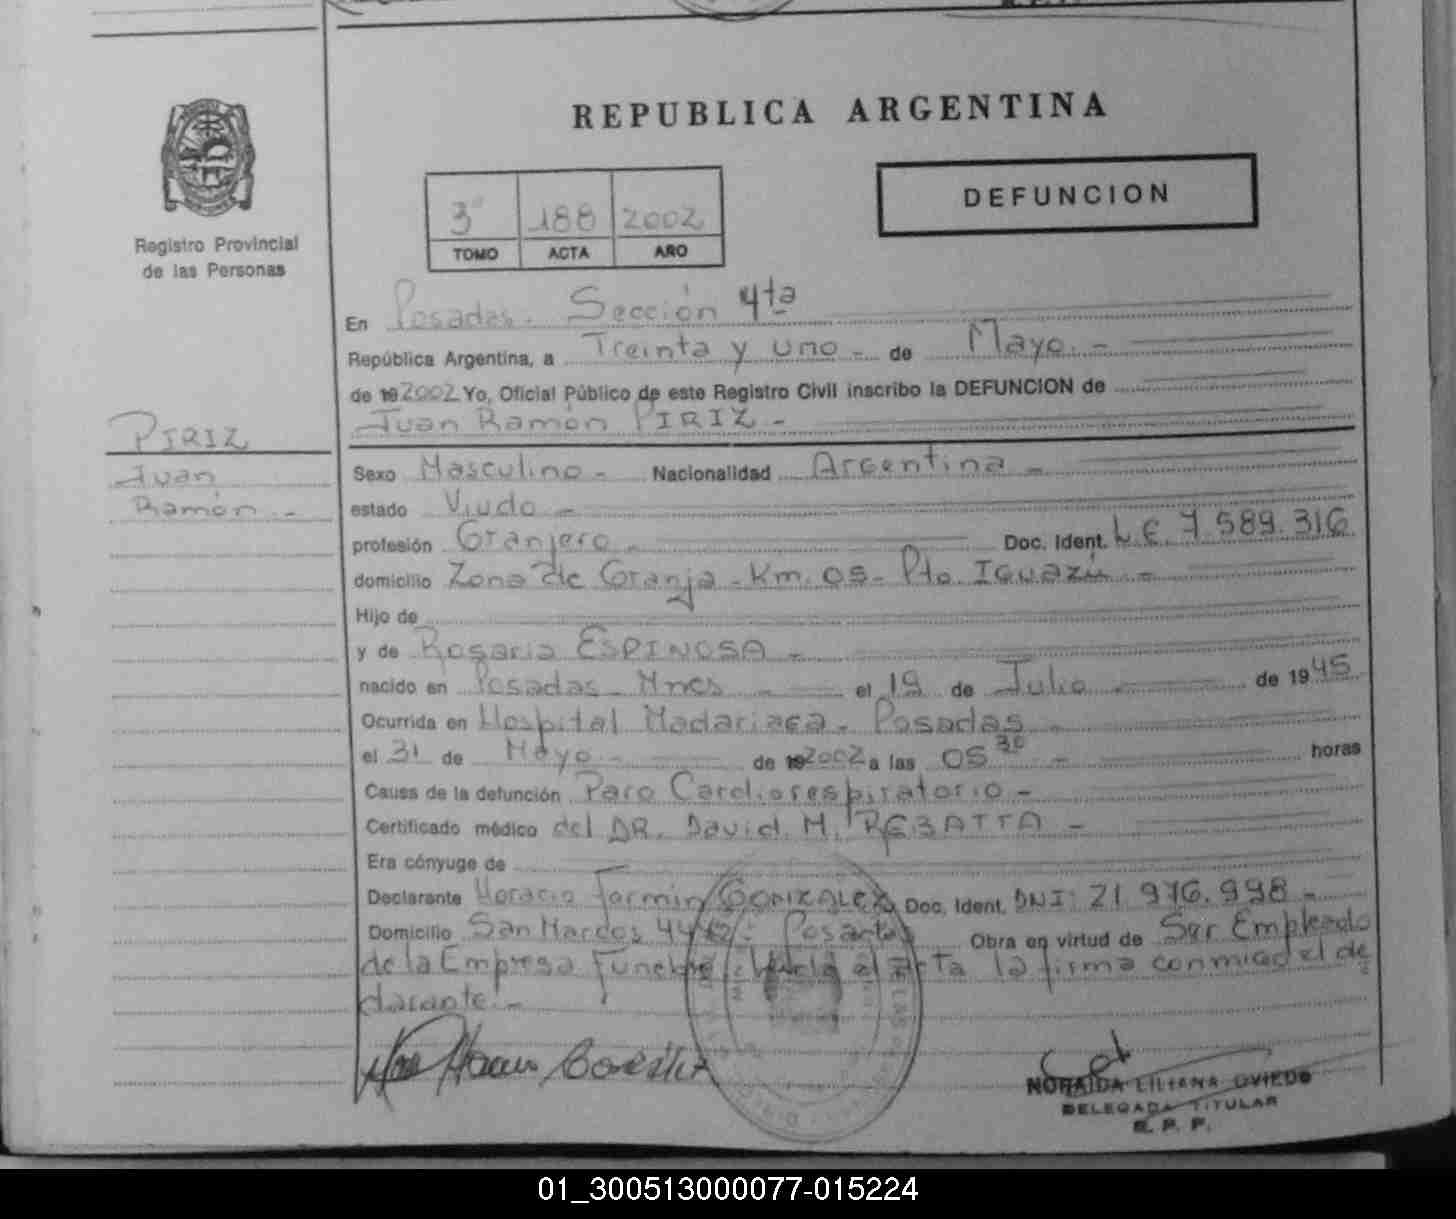 REPUBLICA ARGENTINA
DEFUNCION
3° 188 2002
TOMO ACTA AÑO
Registro Provincial
de las Personas
En Posadas - Sección 4ta
República Argentina, a Treinta y uno - de Mayo. -
de 19 2002 Yo, Oficial Público de este Registro Civil inscribo la DEFUNCION de
Juan Ramón PIRIZ -
PIRIZ
Juan
Ramón. -
Sexo Masculino - Nacionalidad Argentina -
estado Viudo -
profesión Granjero - Doc. Ident. L.E. 7.589.316
domicilio Zona de Granja - Km. 05 - Pto. Iguazú -
Hijo de
y de Rosaria ESPINOSA -
nacido en Posadas - Mnes - el 19 de Julio - de 1945
Ocurrida en Hospital Madariaga - Posadas -
el 31 de Mayo - de 19 2002 a las 05 30 - horas
Causa de la defunción Paro Cardiorespiratorio -
Certificado médico del DR. David M. REBATTA -
Era cónyuge de
Declarante Horacio Fermin GONZALEZ Doc. Ident. DNI: 21.976.998 -
Domicilio San Marcos - Posadas Obra en virtud de Ser Empleado
de la Empresa Funebre el Acta la firma conmigo el de
clarante. -
NORAIDA LILIANA OVIEDO
DELEGADA TITULAR
R. P. P.
01_300513000077-015224